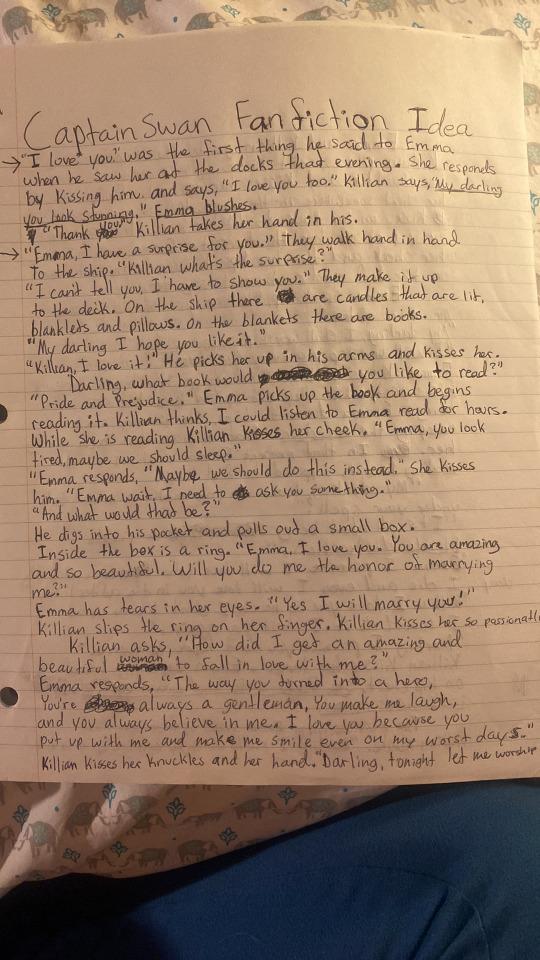 Captain Swan Fanfiction Idea
→ "I love you." was the first thing he said to Emma
when he saw her at the docks that evening. She responds
by Kissing him. and says, "I love you too." Killian says, "My darling
you look stunning." Emma blushes.
"Thank you" Killian takes her hand in his.
→ "Emma, I have a surprise for you." They walk hand in hand
to the ship. "Killian what's the surprise?"
"I can't tell you, I have to show you." They make it up
to the deck. On the ship there are candles that are lit,
blanklets and pillows. On the blankets there are books.
"My darling I hope you like it."
"Killian, I love it!" He picks her up in his arms and kisses her.
Darling, what book would you like to read?"
"Pride and Prejudice." Emma picks up the book and begins
reading it. Killian thinks, I could listen to Emma read for hours.
While she is reading Killian Kisses her cheek. "Emma, you look
tired, maybe we should sleep."
"Emma responds, "Maybe we should do this instead." She Kisses
him. "Emma wait, I need to ask you something."
"And what would that be?"
He digs into his pocket and pulls out a small box.
Inside the box is a ring. "Emma, I love you. You are amazing
and so beautiful. Will you do me the honor of marrying
me?"
Emma has tears in her eyes. "Yes I will marry you!"
Killian slips the ring on her finger. Killian Kisses her so passionatl
Killian asks, "How did I get an amazing and
beautiful woman to fall in love with me?"
Emma responds, "The way you turned into a hero,
You're always a gentleman, You make me laugh,
and you always believe in me. I love you because you
put up with me and make me smile even on my worst days."
Killian Kisses her Knuckles and her hand. "Darling, tonight let me worship